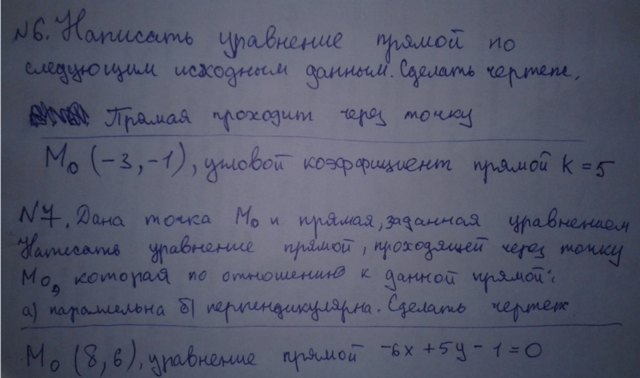 №6. Написать уравнение прямой по
следующим исходным данным. Сделать чертеж.
Прямая проходит через точку
M₀ (-3, -1), угловой коэффициент прямой k = 5
№7. Дана точка M₀ и прямая, заданная уравнением
Написать уравнение прямой, проходящей через точку
M₀, которая по отношению к данной прямой:
а) параллельна б) перпендикулярна. Сделать чертеж
M₀ (8, 6), уравнение прямой -6x + 5y - 1 = 0